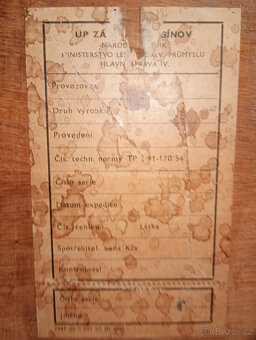 ÚP ZÁ SÍNOV
NÁROD
MINISTERSTVO LES PRŮMYSLU
HLAVN SPRÁVA IV.
Provozovna
Druh výrobku
Provedení
Čís. techn. normy TP 91-170 54
Číslo serie
Datum expedice
Čís. ceníku Látka
Spotřebitel. cena Kčs
Kontroloval
Číslo serie
Jméno